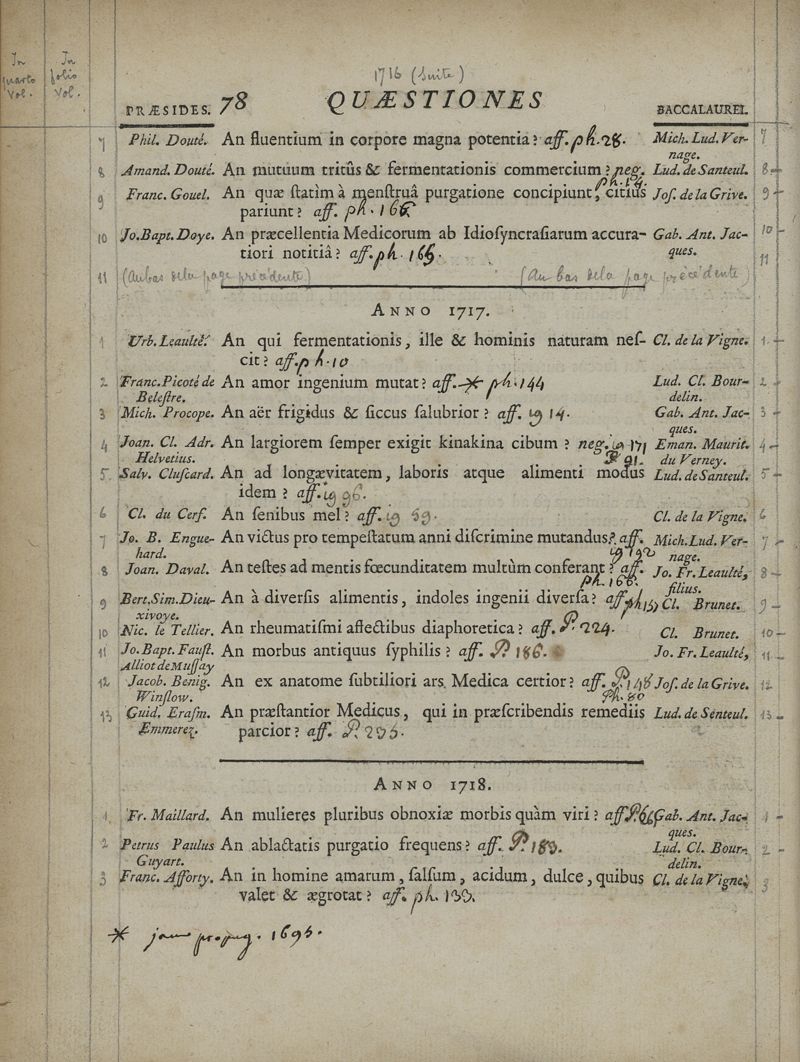 In In
quarto folio 1716 (Suite)
Vol. Vol.
PRÆSIDES. 78 QUÆSTIONES BACCALAUREI.
7 Phil. Douté. An fluentium in corpore magna potentia? aff. ph. 28. Mich. Lud. Ver- 7
nage.
8 Amand. Douté. An mutuum tritûs & fermentationis commercium? neg. Lud. de Santeul. 8
9 Franc. Gouel. An quæ ſtatìm à menſtruâ purgatione concipiunt, citiùs Joſ. de la Grive. 9
pariunt? aff. ph. 166
10 Jo. Bapt. Doye. An præcellentia Medicorum ab Idioſyncraſiarum accura- Gab. Ant. Jac- 10
tiori notitiâ? aff. ph. 166. ques.
11 (Au bas de la page précédente) (Au bas de la page précédente) 11
ANNO 1717.
1 Urb. Leaulté. An qui fermentationis, ille & hominis naturam neſ- Cl. de la Vigne. 1
cit? aff. ph. 10
2 Franc. Picoté de An amor ingenium mutat? aff. * ph. 144 Lud. Cl. Bour- 2
Beleſtre. delin.
3 Mich. Procope. An aër frigidus & ſiccus ſalubrior? aff. 14. Gab. Ant. Jac- 3
ques.
4 Joan. Cl. Adr. An largiorem ſemper exigit kinakina cibum? neg. 171 Eman. Maurit. 4
Helvetius. P 91. du Verney.
5. Salv. Cluſcard. An ad longævitatem, laboris atque alimenti modus Lud. de Santeul. 5
idem? aff. 96.
6 Cl. du Cerf. An ſenibus mel? aff. 69. Cl. de la Vigne. 6
7 Jo. B. Engue- An victus pro tempeſtatum anni diſcrimine mutandus? aff. Mich. Lud. Ver- 7
hard. nage.
8 Joan. Daval. An teſtes ad mentis fœcunditatem multùm conferant? aff. Jo. Fr. Leaulté, 8
ph. 166. filius.
9 Bert. Sim. Dieu- An à diverſis alimentis, indoles ingenii diverſa? aff. ph Cl. Brunet. 9
xivoye.
10 Nic. le Tellier. An rheumatiſmi affectibus diaphoretica? aff. P. 224. Cl. Brunet. 10
11 Jo. Bapt. Fauſt. An morbus antiquus ſyphilis? aff. P. 186. Jo. Fr. Leaulté, 11
Alliot de Muſſay
12 Jacob. Benig. An ex anatome ſubtiliori ars Medica certior? aff. P 148 Joſ. de la Grive. 12
Winſlow. ph. 80
13 Guid. Eraſm. An præſtantior Medicus, qui in præſcribendis remediis Lud. de Senteul. 13
Emmerez. parcior? aff. P. 295.
ANNO 1718.
1 Fr. Maillard. An mulieres pluribus obnoxiæ morbis quàm viri? aff. P. 66 Gab. Ant. Jac- 1
ques.
2 Petrus Paulus An ablactatis purgatio frequens? aff. P. 189. Lud. Cl. Bour- 2
Guyart. delin.
3 Franc. Afforty. An in homine amarum, ſalſum, acidum, dulce, quibus Cl. de la Vigne, 3
valet & ægrotat? aff. ph. 133.
* 1695.